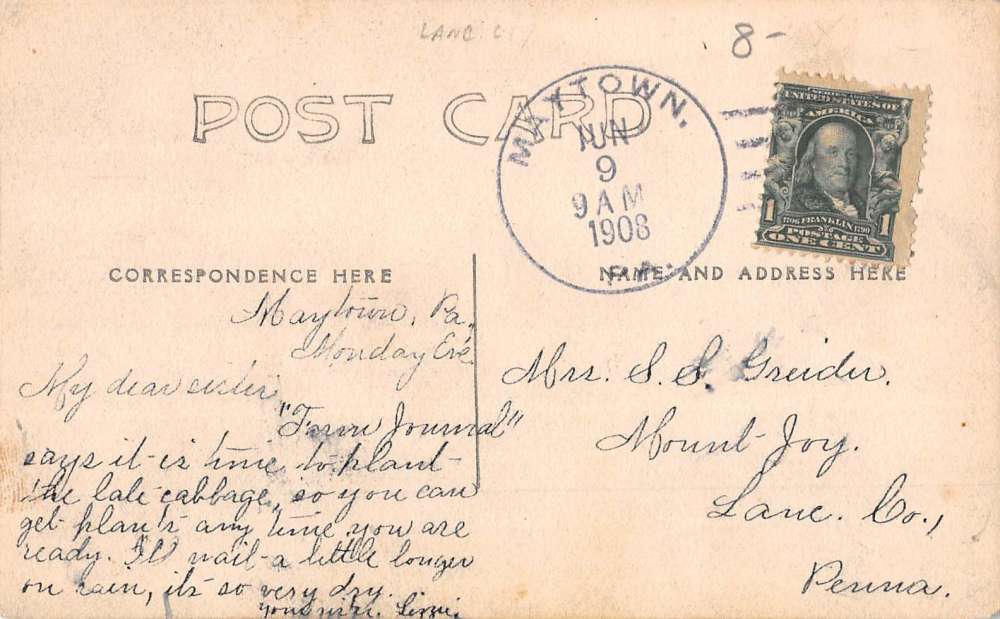 LANC. C
8-
POST CARD
MAYTOWN,
JUN
9
9 AM
1908
PA.
SERIES 1902
UNITED STATES OF
AMERICA
1 1
1706 FRANKLIN 1790
POSTAGE
ONE CENT
CORRESPONDENCE HERE
Maytown, Pa,
Monday Eve
My dear sister
"Farm Journal"
says it is time to plant
the late cabbage, so you can
get plants any time you are
ready. I'll wait a little longer
on rain, its so very dry.
Your sister. Lizzie.
NAME AND ADDRESS HERE
Mrs. S. S. Greider.
Mount Joy.
Lanc. Co.,
Penna.